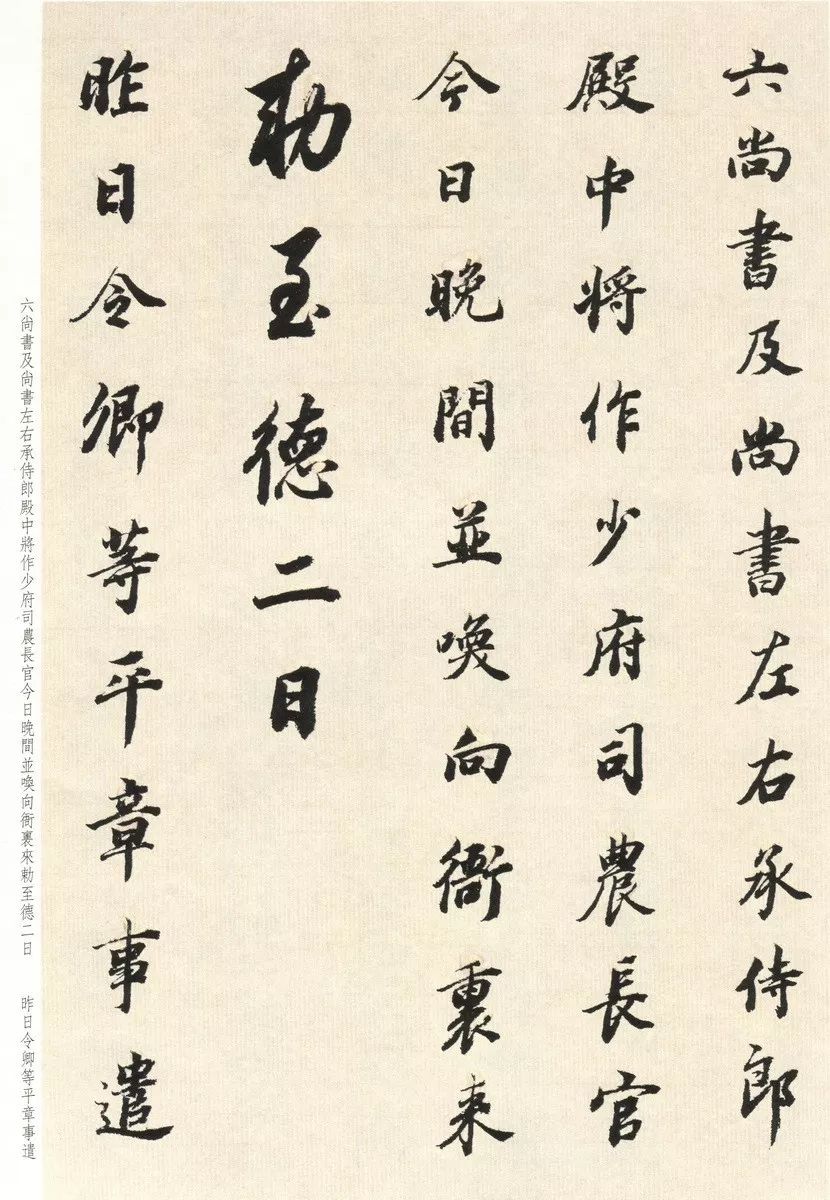 六尚書及尚書左右承侍郎
殿中將作少府司農長官
今日晚間並喚向衙裏來
勅至德二日
昨日令卿等平章事遣
六尚書及尚書左右承侍郎殿中將作少府司農長官今日晚間並喚向衙裏來勅至德二日　昨日令卿等平章事遣